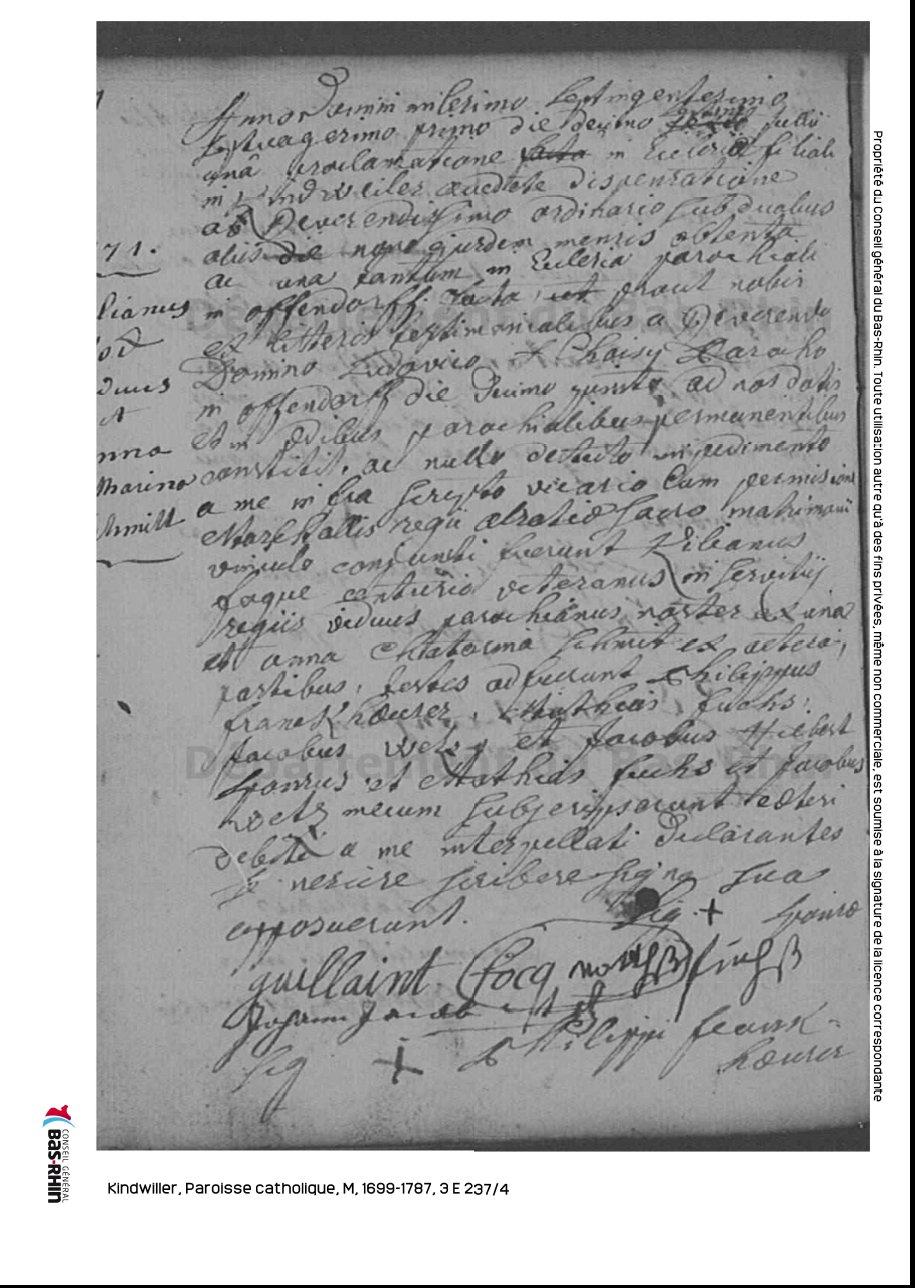 Anno Domini milesimo Septingentesimo
Septuagesimo primo die decimo Julii
unâ proclamatione facta in Ecclesia filiali
in Kindweiler accedente dispensatione
a Reverendissimo ordinario sub duabus
aliis die ejusdem mensis obtenta
ac una tantum in Ecclesia parochiali
in offendorff facta, ut prout nobis
ex litteris testimonialibus a Reverendo
Domino Ludovico Choisy Parocho
in offendorff die Decimo quinto ad nos datis
et in ædibus parochialibus permanentibus
constitit, ac nullo detecto impedimento
a me infra scripto vicario Cum permissione
regii sacro matrimonii
vinculo conjuncti fuerunt Kilianus
foque centurio veteranus in servitiis
regiis viduus parochianus noster ex una
et anna Schmit ex altera
partibus, testes adfuerunt Philippus
franckhauser, Mathias fuchs,
Jacobus Wetz, et Jacobus
Sponsus, et Mathias fuchs et Jacobus
Wetz mecum subscripserunt cæteri
debite a me interpellati declarantes
se nescire scribere signa sua
apposuerunt.
Sig + Sponsæ
guillaint. focq
Johann Jacob
Sig + Philippi franck-
hauser
71.
lianus
viduus
et
nna
Marina
chmitt
Département du Bas-Rhin
Département du Bas-Rhin
Propriété du Conseil général du Bas-Rhin. Toute utilisation autre qu'à des fins privées, même non commerciale, est soumise à la signature de la licence correspondante
CONSEIL GÉNÉRAL
Bas-Rhin
Kindwiller, Paroisse catholique, M, 1699-1787, 3 E 237/4